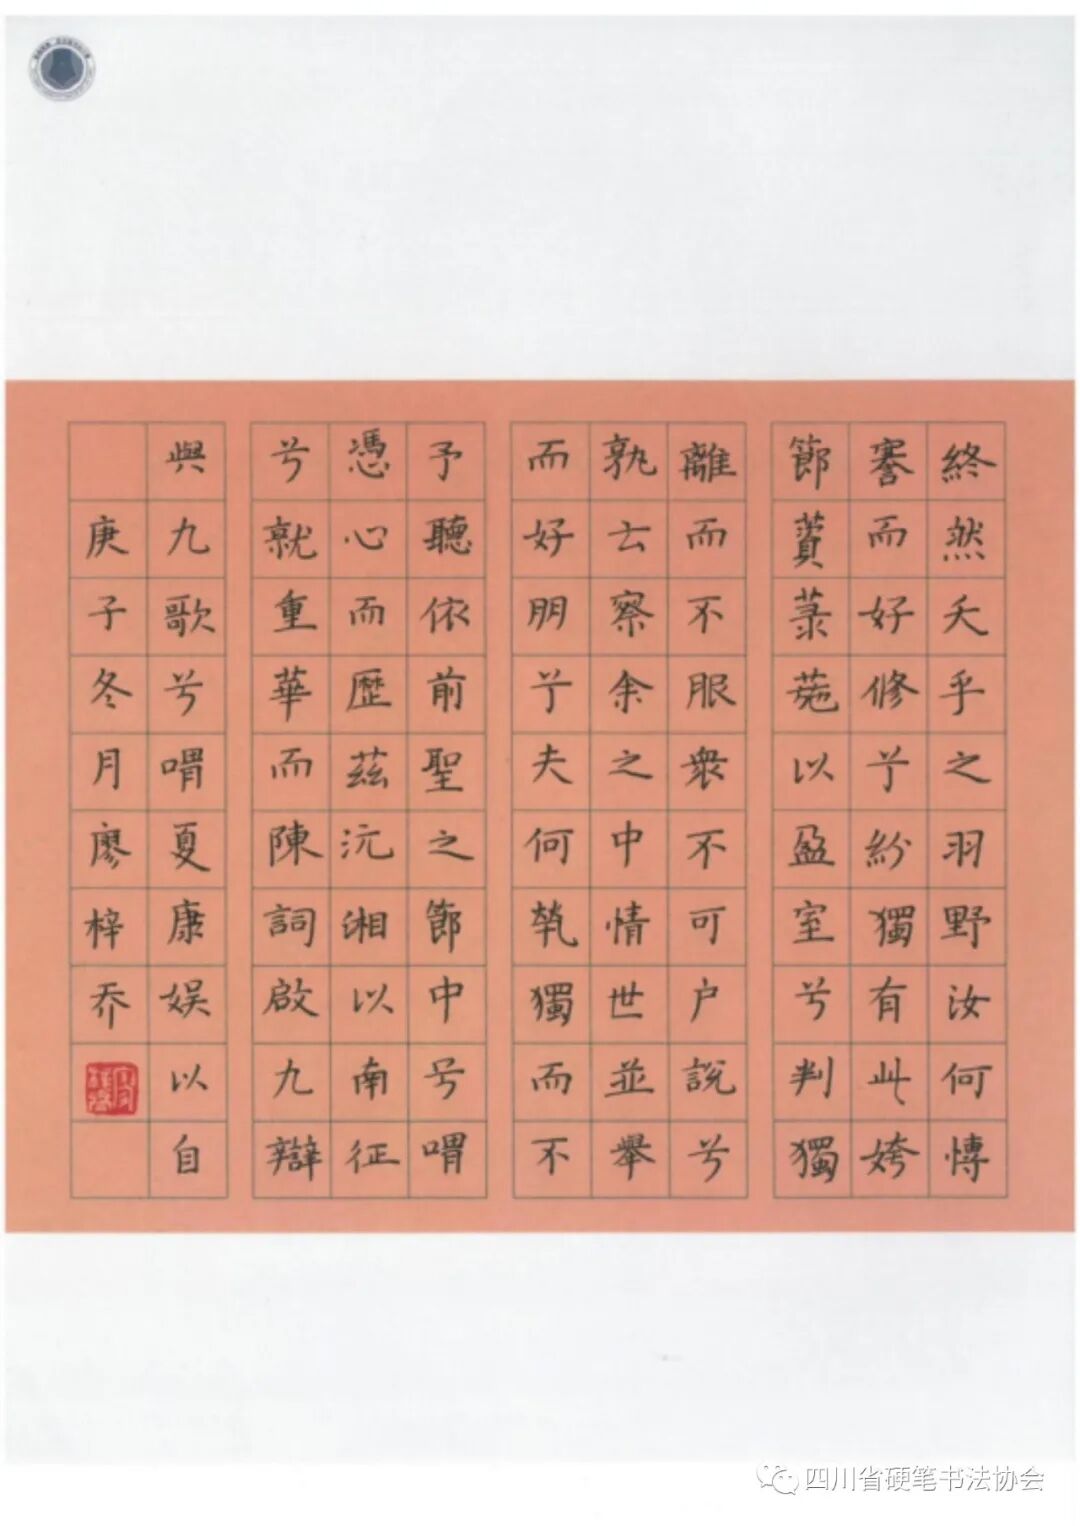 終然夭乎之羽野汝何愽
謇而好修兮紛獨有此姱
節薋菉葹以盈室兮判獨
離而不服衆不可户說兮
孰云察余之中情世並舉
而好朋兮夫何煢獨而不
予聽依前聖之節中兮喟
憑心而歷茲沅湘以南征
兮就重華而陳詞啟九辯
與九歌兮喟夏康娱以自
庚子冬月廖梓乔
四川省硬笔书法协会